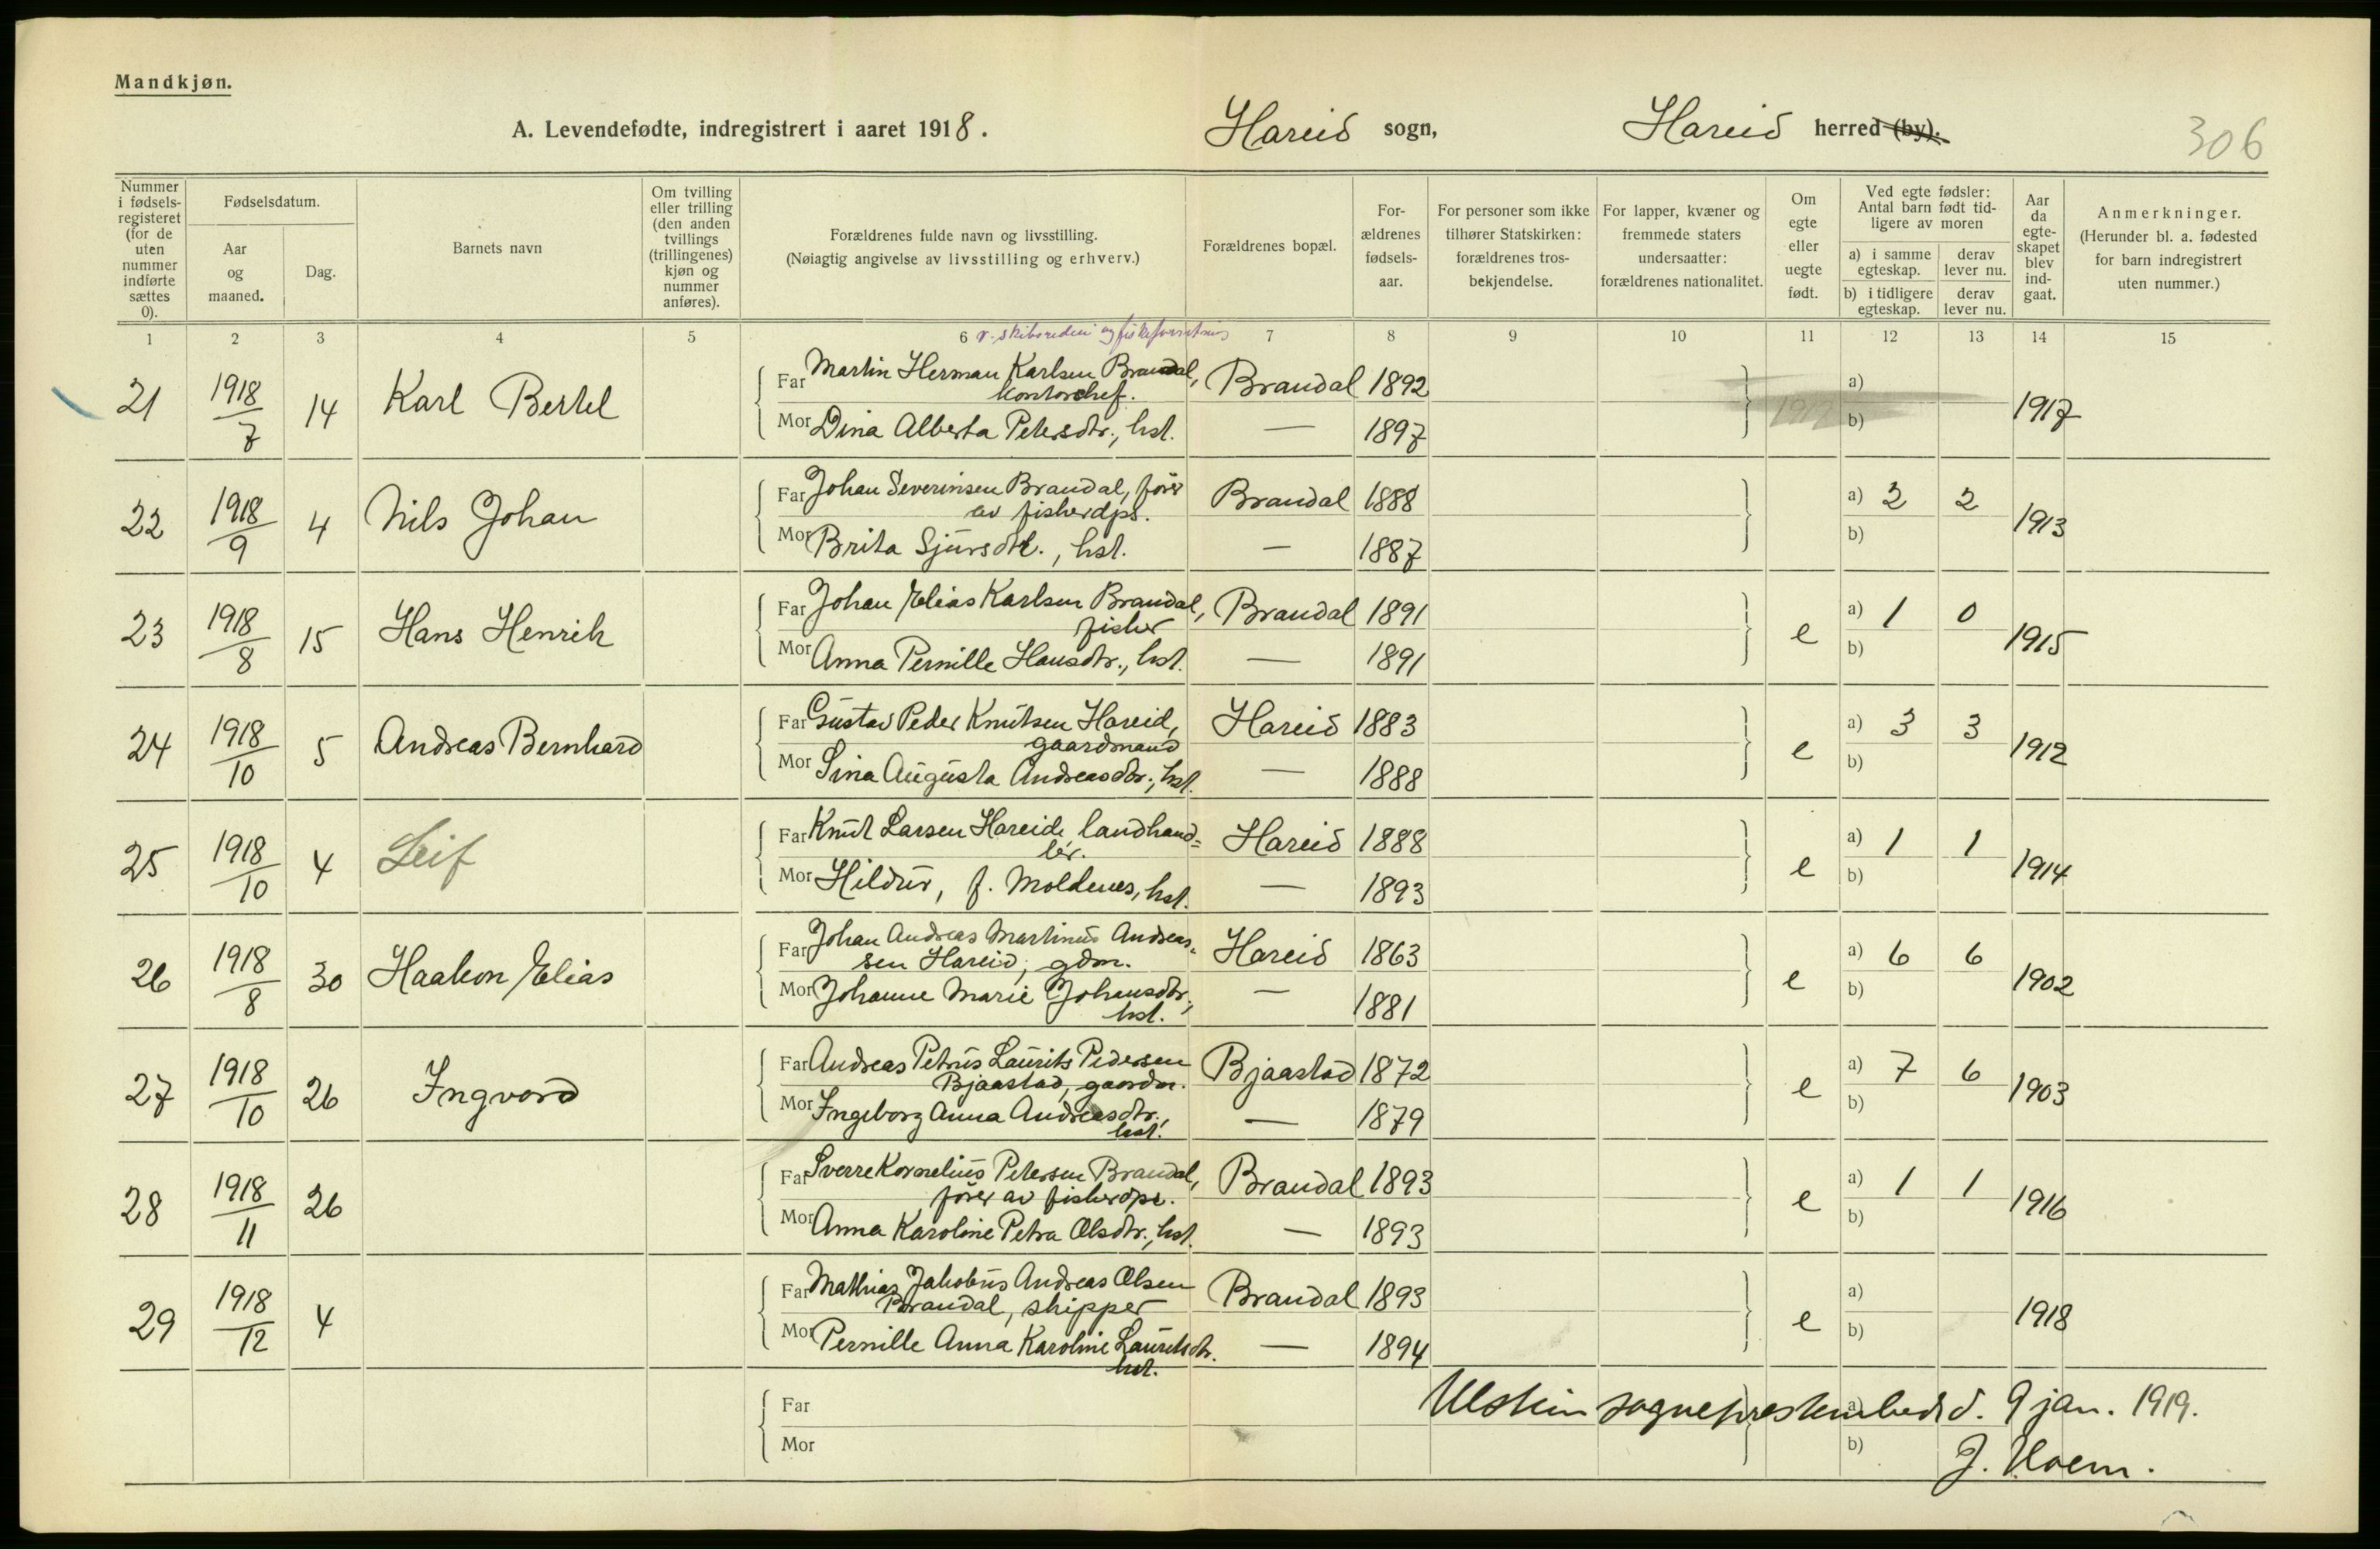 Mandkjøn.
A. Levendefødte, indregistrert i aaret 1918. Hareid sogn, Hareid herred (by).
306
Nummer i fødsels-registeret (for de uten nummer indførte sættes 0).
Fødselsdatum.
Aar og maaned.
Dag.
Barnets navn
Om tvilling eller trilling (den anden tvillings (trillingenes) kjøn og nummer anføres).
Forældrenes fulde navn og livsstilling.
(Nøiagtig angivelse av livsstilling og erhverv.)
Forældrenes bopæl.
For-ældrenes fødsels-aar.
For personer som ikke tilhører Statskirken: forældrenes tros-bekjendelse.
For lapper, kvæner og fremmede staters undersaatter: forældrenes nationalitet.
Om egte eller uegte født.
Ved egte fødsler: Antal barn født tid-ligere av moren
a) i samme egteskap.
derav lever nu.
b) i tidligere egteskap.
derav lever nu.
Aar da egte-skapet blev ind-gaat.
Anmerkninger.
(Herunder bl. a. fødested for barn indregistrert uten nummer.)
1 2 3 4 5 6 7 8 9 10 11 12 13 14 15
21 1918/7 14 Karl Bertel
Far Martin Herman Karlsen Brandal, Brandal 1892 a)
kontorchef.
Mor Dina Alberta Petersdtr., hst. — 1897 b) 1917
22 1918/9 4 Nils Johan
Far Johan Severinsen Brandal, förer Brandal 1888 a) 2 2
av fiskerdps.
Mor Brita Sjursdtr., hst. — 1887 b) 1913
23 1918/8 15 Hans Henrik
Far Johan Elias Karlsen Brandal, Brandal 1891 e a) 1 0
fisker
Mor Anna Pernille Hansdtr., hst. — 1891 b) 1915
24 1918/10 5 Andreas Bernhard
Far Gustav Peder Knutsen Hareid, Hareid 1883 e a) 3 3
gaardmand
Mor Sina Augusta Andreasdtr., hst. — 1888 b) 1912
25 1918/10 4 Leif
Far Knut Larsen Hareide, landhand= Hareid 1888 e a) 1 1
ler.
Mor Hildur, f. Moldenes, hst. — 1893 b) 1914
26 1918/8 30 Haakon Elias
Far Johan Andreas Martinus Andreas- Hareid 1863 e a) 6 6
sen Hareid, gdm.
Mor Johanne Marie Johansdtr., — 1881 b) 1902
hst.
27 1918/10 26 Ingvard
Far Andreas Petrus Laurits Pedersen Bjaastad 1872 e a) 7 6
Bjaastad, gaardm.
Mor Ingeborg Anna Andreasdtr., — 1879 b) 1903
hst.
28 1918/11 26
Far Sverre Kornelius Petersen Brandal, Brandal 1893 e a) 1 1
förer av fiskerdps.
Mor Anna Karoline Petra Olsdtr., hst. — 1893 b) 1916
29 1918/12 4
Far Mathias Jakobus Andreas Olsen Brandal 1893 e a)
Brandal, skipper
Mor Pernille Anna Karoline Lauritsdtr. — 1894 b) 1918
hst.
Far a)
Ulstein sogneprestembed d. 9 jan. 1919.
Mor b)
J. Hoem.